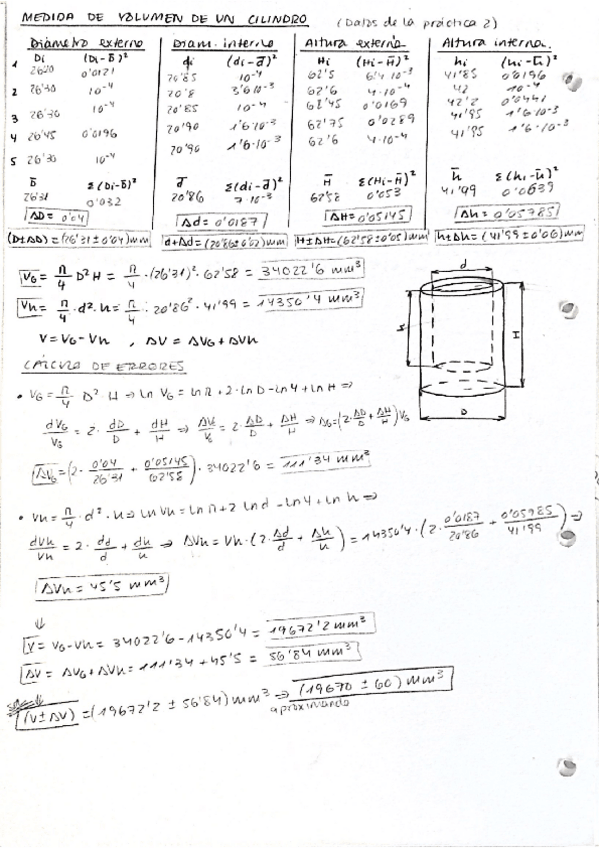 MEDIDA DE VOLUMEN DE UN CILINDRO (Datos de la práctica 2)
Diámetro externo Diam. interno Altura externa Altura interna.
Di (Di-D̄)² di (di-d̄)² Hi (Hi-H̄)² hi (hi-h̄)²
1 26'20 0'0121 20'85 10⁻⁴ 62'5 6'4·10⁻³ 41'85 0'0196
2 26'30 10⁻⁴ 20'8 3'6·10⁻³ 62'6 4·10⁻⁴ 42 10⁻⁴
3 26'30 10⁻⁴ 20'85 10⁻⁴ 62'45 0'0169 42'2 0'0441
4 26'45 0'0196 20'90 1'6·10⁻³ 62'75 0'0289 41'95 1'6·10⁻³
5 26'30 10⁻⁴ 20'90 1'6·10⁻³ 62'6 4·10⁻⁴ 41'95 1'6·10⁻³
D̄ Σ(Di-D̄)² d̄ Σ(di-d̄)² H̄ Σ(Hi-H̄)² h̄ Σ(hi-h̄)²
26'31 0'032 20'86 7·10⁻³ 62'58 0'053 41'99 0'0639
ΔD = 0'04 Δd = 0'0187 ΔH = 0'05145 Δh = 0'05785
(D±ΔD) = (26'31±0'04)mm d±Δd = (20'86±0'02)mm H±ΔH = (62'58±0'05)mm h±Δh = (41'99±0'06)mm
VG = π/4 D² H = π/4 · (26'31)² · 62'58 = 34022'6 mm³
Vh = π/4 · d² · h = π/4 · 20'86² · 41'99 = 14350'4 mm³
V = VG - Vh , ΔV = ΔVG + ΔVh
CÁLCULO DE ERRORES
• VG = π/4 D² · H ⇒ ln VG = ln π + 2·ln D - ln 4 + ln H ⇒
dVG/VG = 2 · dD/D + dH/H ⇒ ΔVG/VG = 2·ΔD/D + ΔH/H ⇒ ΔVG = (2·ΔD/D + ΔH/H) VG
ΔVG = (2 · 0'04/26'31 + 0'05145/62'58) · 34022'6 = 111'34 mm³
• Vh = π/4 · d² · h ⇒ ln Vh = ln π + 2 ln d - ln 4 + ln h ⇒
dVh/Vh = 2 · dd/d + dh/h ⇒ ΔVh = Vh · (2·Δd/d + Δh/h) = 14350'4 · (2 · 0'0187/20'86 + 0'05985/41'99) ⇒
ΔVh = 45'5 mm³
⇓
V = VG - Vh = 34022'6 - 14350'4 = 19672'2 mm³
ΔV = ΔVG + ΔVh = 111'34 + 45'5 = 56'84 mm³
(V±ΔV) = (19672'2 ± 56'84) mm³ ⇒ (19670 ± 60) mm³
aproximando
d
h
H
D